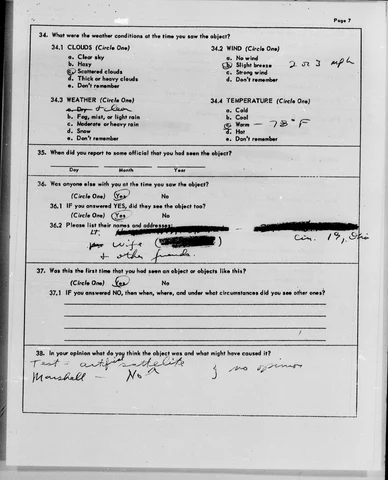 Page 7
34. What were the weather conditions at the time you saw the object?
34.1 CLOUDS (Circle One)
a. Clear sky
b. Hazy
c. Scattered clouds
d. Thick or heavy clouds
e. Don't remember
34.2 WIND (Circle One)
a. No wind
b. Slight breeze 2 or 3 mph
c. Strong wind
d. Don't remember
34.3 WEATHER (Circle One)
a. Dry & clear
b. Fog, mist, or light rain
c. Moderate or heavy rain
d. Snow
e. Don't remember
34.4 TEMPERATURE (Circle One)
a. Cold
b. Cool
c. Warm — 78° F
d. Hot
e. Don't remember
35. When did you report to some official that you had seen the object?
Day Month Year
36. Was anyone else with you at the time you saw the object?
(Circle One) Yes No
36.1 IF you answered YES, did they see the object too?
(Circle One) Yes No
36.2 Please list their names and addresses:
Lt. Cin. 19, Ohio
wife
& other friends.
37. Was this the first time that you had seen an object or objects like this?
(Circle One) Yes No
37.1 IF you answered NO, then when, where, and under what circumstances did you see other ones?
38. In your opinion what do you think the object was and what might have caused it?
Test - artificial sattelite
Marshall — No } no opinion